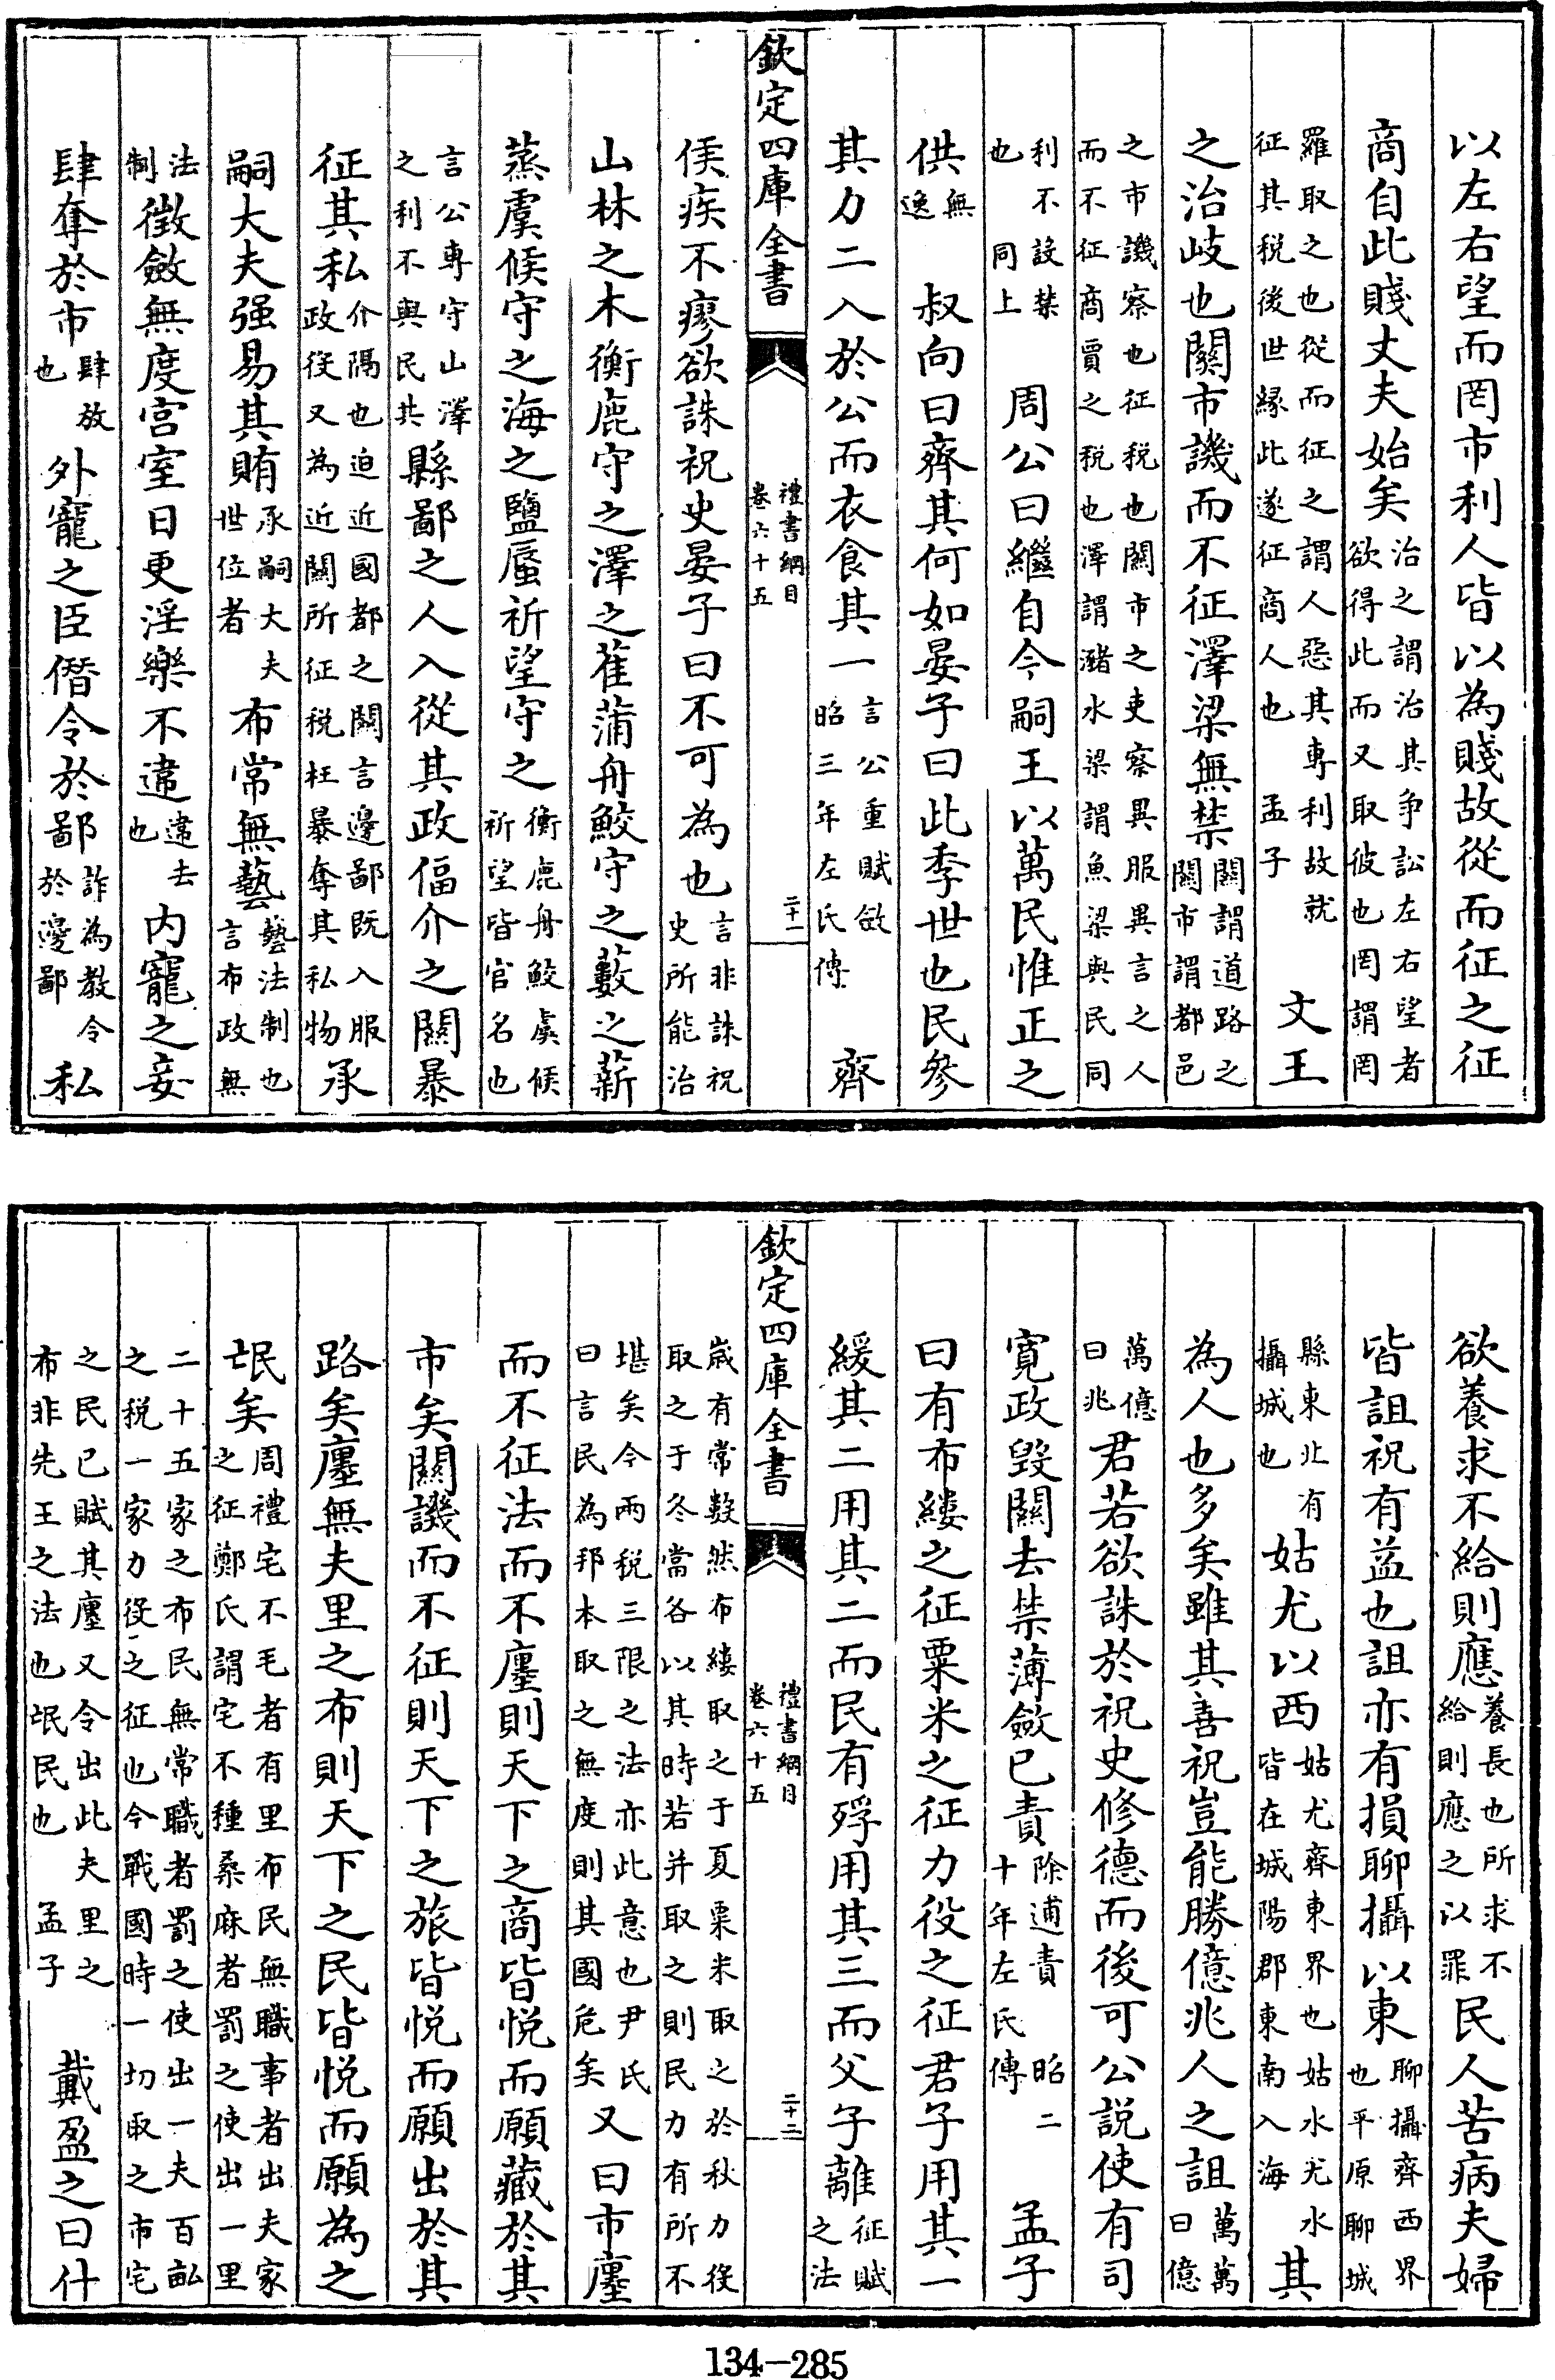 以左右望而罔市利人皆以為賤故從而征之征
商自此賤丈夫始矣治之謂治其争訟左右望者欲得此而又取彼也罔謂罔
羅取之也從而征之謂人惡其專利故就征其税後世縁此遂征商人也 孟子 文王
之治岐也關市譏而不征澤梁無禁關謂道路之關市謂都邑
之市譏察也征税也關市之吏察異服異言之人而不征商賈之税也澤謂瀦水梁謂魚梁與民同
利不設禁也 同上 周公曰繼自今嗣王以萬民惟正之
供無逸 叔向曰齊其何如晏子曰此季世也民參
其力二入於公而衣食其一言公重賦斂昭三年左氏傳 齊
欽定四庫全書 禮書綱目 卷六十五 二十一
侯疾不瘳欲誅祝史晏子曰不可為也言非誅祝史所能治
山林之木衡鹿守之澤之萑蒲舟鮫守之藪之薪
蒸虞候守之海之鹽蜃祈望守之衡鹿舟鮫虞候祈望皆官名也
言公專守山澤之利不與民共縣鄙之人入從其政偪介之關暴
征其私介隔也迫近國都之關言邊鄙既入服政役又為近關所征税枉暴奪其私物承
嗣大夫强易其賄承嗣大夫世位者布常無藝藝法制也言布政無
法制徴斂無度宫室日更淫樂不違違去也内寵之妾
肆奪於市肆放也外寵之臣僭令於鄙詐為教令於邊鄙私
欲養求不給則應養長也所求不給則應之以罪民人苦病夫婦
皆詛祝有益也詛亦有損聊攝以東聊攝齊西界也平原聊城
縣東北有攝城也姑尤以西姑尤齊東界也姑水尤水皆在城陽郡東南入海其
為人也多矣雖其善祝豈能勝億兆人之詛萬萬曰億
萬億曰兆君若欲誅於祝史修德而後可公説使有司
寛政毁關去禁薄斂已責除逋責 昭二十年左氏傳 孟子
曰有布縷之征粟米之征力役之征君子用其一
緩其二用其二而民有殍用其三而父子離征賦之法
欽定四庫全書 禮書綱目 卷六十五 二十二
歲有常數然布縷取之于夏粟米取之於秋力役取之于冬當各以其時若并取之則民力有所不
堪矣今兩税三限之法亦此意也尹氏曰言民為邦本取之無度則其國危矣又曰市廛
而不征法而不廛則天下之商皆悦而願藏於其
市矣關譏而不征則天下之旅皆悦而願出於其
路矣廛無夫里之布則天下之民皆悦而願為之
氓矣周禮宅不毛者有里布民無職事者出夫家之征鄭氏謂宅不種桑麻者罰之使出一里
二十五家之布民無常職者罰之使出一夫百畝之税一家力役之征也今戰國時一切取之市宅
之民已賦其廛又令出此夫里之布非先王之法也氓民也 孟子 戴盈之曰什
134—285